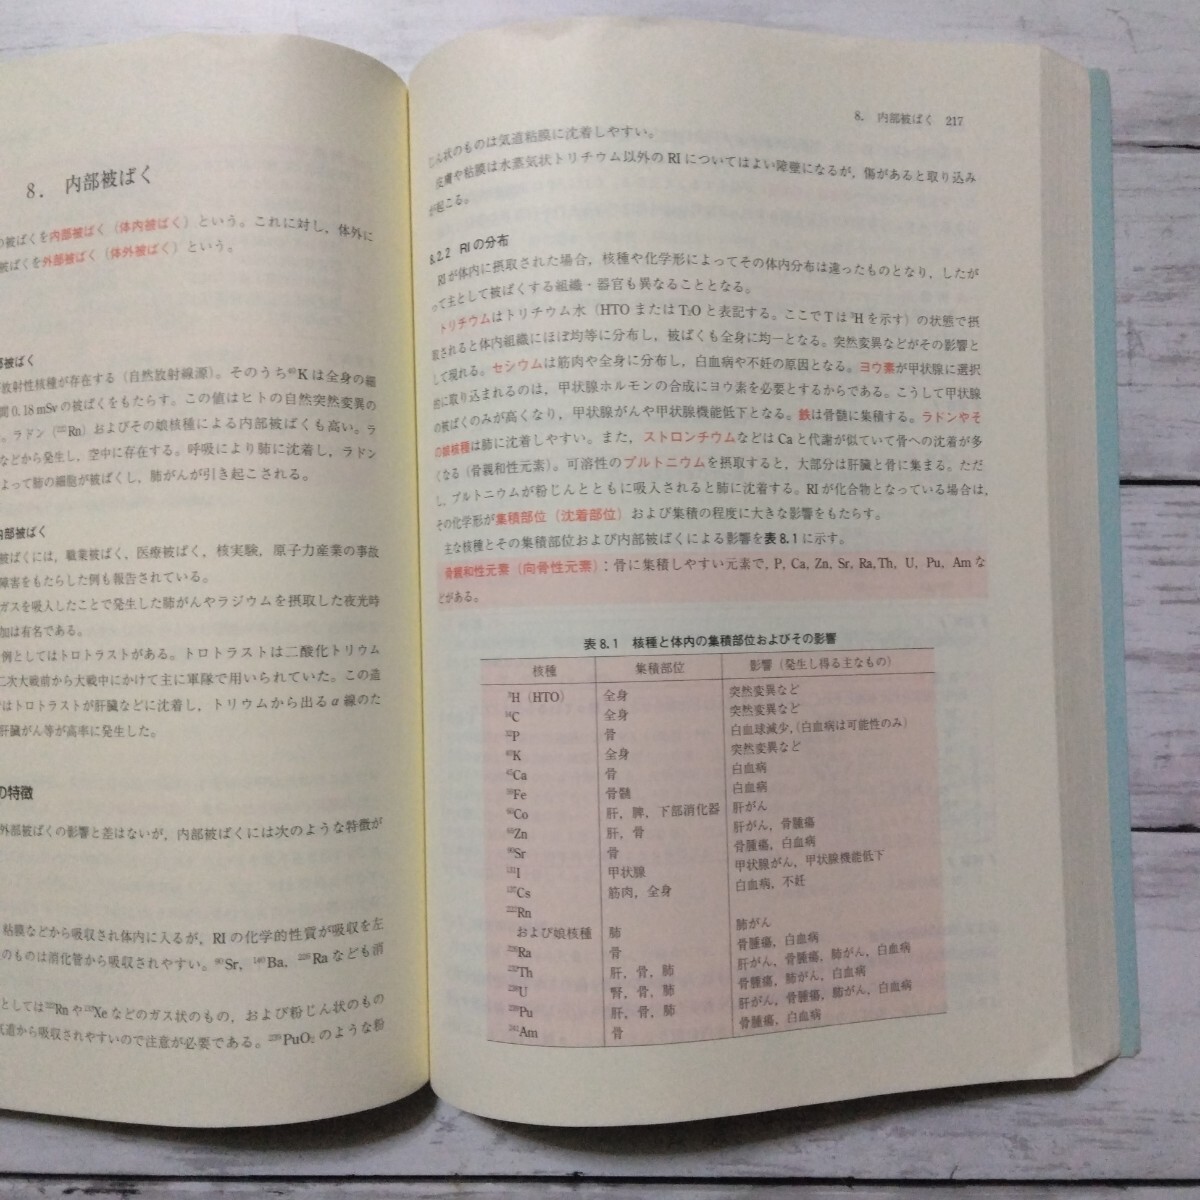 8. 内部被ばく
の被ばくを内部被ばく(体内被ばく)という。これに対し，体外に
被ばくを外部被ばく(体外被ばく)という。
部被ばく
放射性核種が存在する(自然放射線源)。そのうち⁴⁰Kは全身の細
間0.18 mSvの被ばくをもたらす。この値はヒトの自然突然変異の
。ラドン(²²²Rn)およびその娘核種による内部被ばくも高い。ラ
などから発生し，空中に存在する。呼吸により肺に沈着し，ラドン
よって肺の細胞が被ばくし，肺がんが引き起こされる。
内部被ばく
被ばくには，職業被ばく，医療被ばく，核実験，原子力産業の事故
障害をもたらした例も報告されている。
ガスを吸入したことで発生した肺がんやラジウムを摂取した夜光時
加は有名である。
例としてはトロトラストがある。トロトラストは二酸化トリウム
二次大戦前から大戦中にかけて主に軍隊で用いられていた。この造
はトロトラストが肝臓などに沈着し，トリウムから出るα線のた
肝臓がん等が高率に発生した。
の特徴
外部被ばくの影響と差はないが，内部被ばくには次のような特徴が
粘膜などから吸収され体内に入るが，RIの化学的性質が吸収を左
のものは消化管から吸収されやすい。⁹⁰Sr，¹⁴⁰Ba，²²⁶Raなども消
としては²²²Rnや¹³³Xeなどのガス状のもの，および粉じん状のもの
気道から吸収されやすいので注意が必要である。²³⁹PuO₂のような粉
8. 内部被ばく 217
じん状のものは気道粘膜に沈着しやすい。
皮膚や粘膜は水蒸気状トリチウム以外のRIについてはよい障壁になるが，傷があると取り込み
が起こる。
8.2.2 RIの分布
RIが体内に摂取された場合，核種や化学形によってその体内分布は違ったものとなり，したが
って主として被ばくする組織・器官も異なることとなる。
トリチウムはトリチウム水(HTOまたはT₂Oと表記する。ここでTは³Hを示す)の状態で摂
取されると体内組織にほぼ均等に分布し，被ばくも全身に均一となる。突然変異などがその影響と
して現れる。セシウムは筋肉や全身に分布し，白血病や不妊の原因となる。ヨウ素が甲状腺に選択
的に取り込まれるのは，甲状腺ホルモンの合成にヨウ素を必要とするからである。こうして甲状腺
の被ばくのみが高くなり，甲状腺がんや甲状腺機能低下となる。鉄は骨髄に集積する。ラドンやそ
の娘核種は肺に沈着しやすい。また，ストロンチウムなどはCaと代謝が似ていて骨への沈着が多
くなる(骨親和性元素)。可溶性のプルトニウムを摂取すると，大部分は肝臓と骨に集まる。ただ
し，プルトニウムが粉じんとともに吸入されると肺に沈着する。RIが化合物となっている場合は，
その化学形が集積部位(沈着部位)および集積の程度に大きな影響をもたらす。
主な核種とその集積部位および内部被ばくによる影響を表8.1に示す。
骨親和性元素(向骨性元素)：骨に集積しやすい元素で，P, Ca, Zn, Sr, Ra, Th, U, Pu, Amな
どがある。
表8.1 核種と体内の集積部位およびその影響
核種 集積部位 影響(発生し得る主なもの)
³H(HTO) 全身 突然変異など
¹⁴C 全身 突然変異など
³²P 骨 白血球減少，(白血病は可能性のみ)
⁴⁰K 全身 突然変異など
⁴⁵Ca 骨 白血病
⁵⁹Fe 骨髄 白血病
⁶⁰Co 肝，脾，下部消化器 肝がん
⁶⁵Zn 肝，骨 肝がん，骨腫瘍
⁹⁰Sr 骨 骨腫瘍，白血病
¹³¹I 甲状腺 甲状腺がん，甲状腺機能低下
¹³⁷Cs 筋肉，全身 白血病，不妊
²²²Rn
および娘核種 肺 肺がん
²²⁶Ra 骨 骨腫瘍，白血病
²³²Th 肝，骨，肺 肝がん，骨腫瘍，肺がん，白血病
²³⁸U 腎，骨，肺 骨腫瘍，肺がん，白血病
²³⁹Pu 肝，骨，肺 肝がん，骨腫瘍，肺がん，白血病
²⁴¹Am 骨 骨腫瘍，白血病